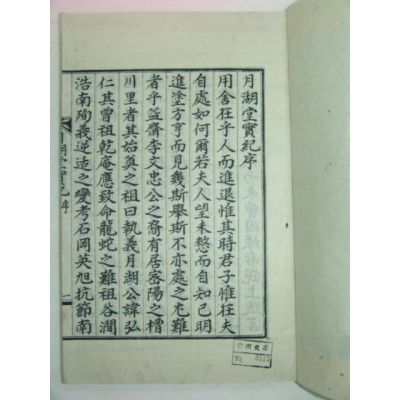 月湖堂實紀序
用舍在乎人而進退惟其時君子惟在夫
自處如何爾若夫人望未愁而自知已明
進塗方亨而見幾斯舉斯不亦處之尤難
者乎益齋李文忠公之裔有居密陽之槽
川里者其始奠之祖曰執義月湖公諱弘
仁其曾祖乾庵應致命龍蛇之難祖谷澗
浩南殉義逆造之變考石岡英旭抗節南
月湖堂實紀序
一
No. 3515